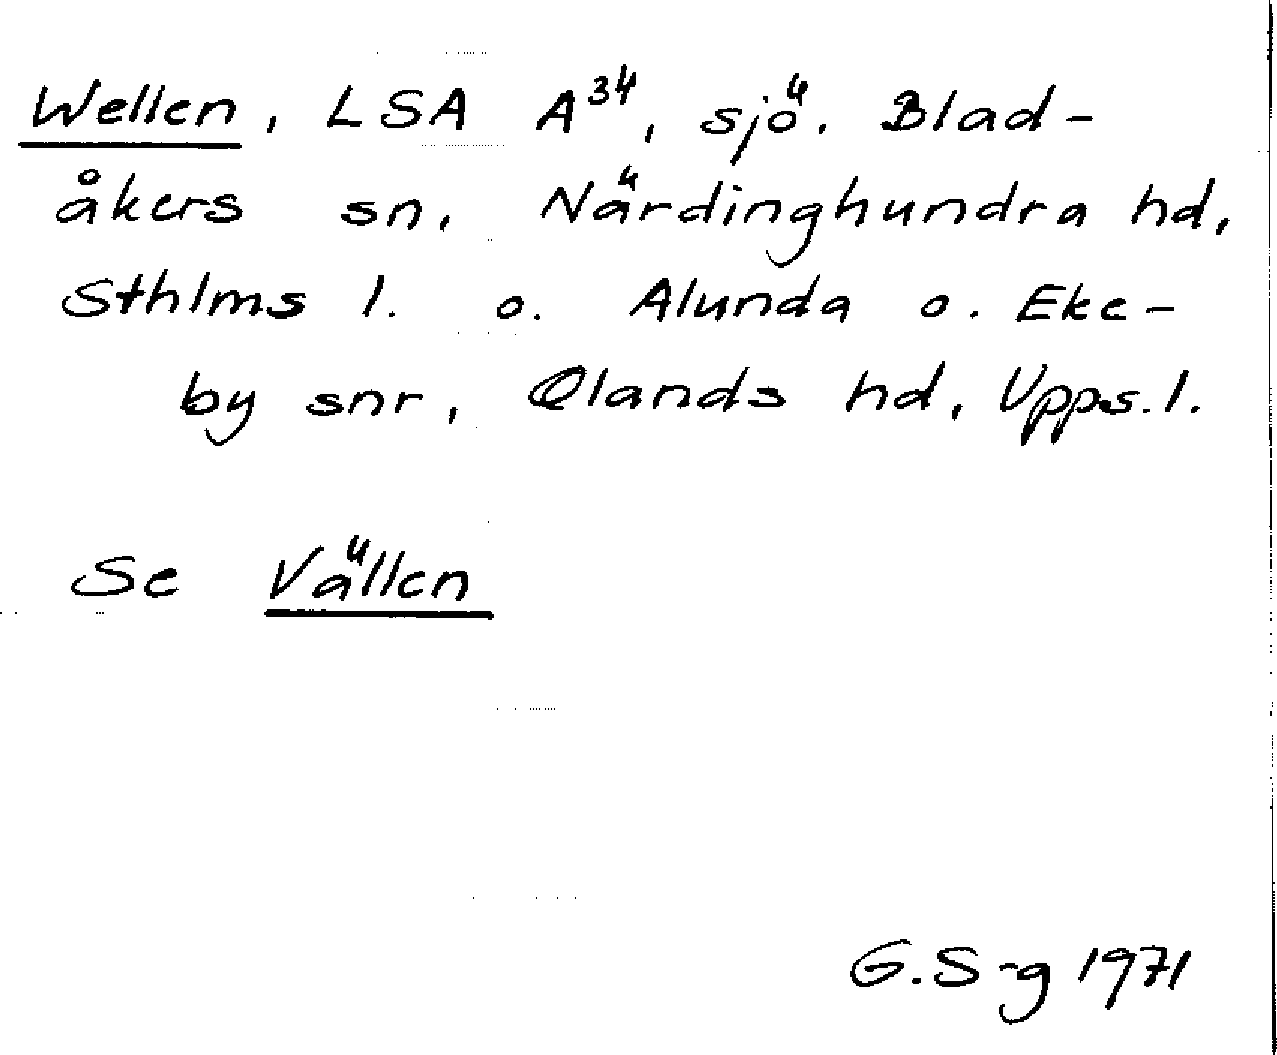 Wellen, LSA A³⁴, sjö. Blad-
åkers sn, Närdinghundra hd,
Sthlms l. o. Alunda o. Eke-
by snr, Olands hd, Upps. l.
Se Vällen
G. S-g 1971